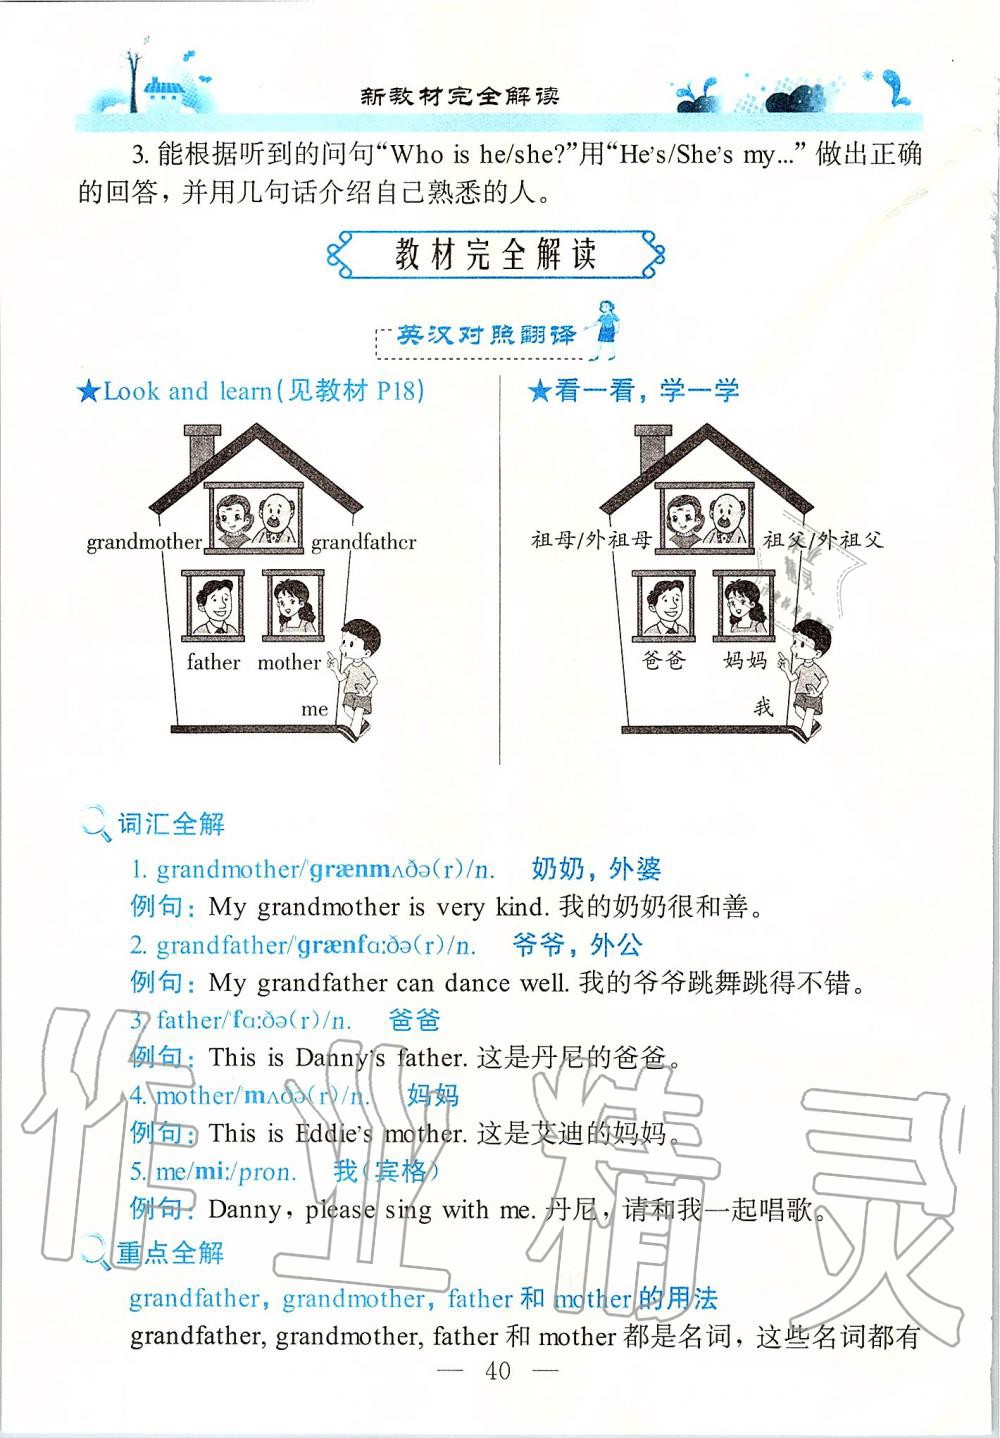 新教材完全解读
3. 能根据听到的问句“Who is he/she?”用“He's/She's my...” 做出正确
的回答，并用几句话介绍自己熟悉的人。
教材完全解读
英汉对照翻译
★Look and learn(见教材 P18)
★看一看，学一学
grandmother
grandfather
father
mother
me
祖母/外祖母
祖父/外祖父
爸爸
妈妈
我
词汇全解
1. grandmother/ˈgrænmʌðə(r)/n. 奶奶，外婆
例句：My grandmother is very kind. 我的奶奶很和善。
2. grandfather/ˈgrænfɑːðə(r)/n. 爷爷，外公
例句：My grandfather can dance well. 我的爷爷跳舞跳得不错。
3. father/ˈfɑːðə(r)/n. 爸爸
例句：This is Danny's father. 这是丹尼的爸爸。
4. mother/ˈmʌðə(r)/n. 妈妈
例句：This is Eddie's mother. 这是艾迪的妈妈。
5. me/miː/pron. 我(宾格)
例句：Danny, please sing with me. 丹尼，请和我一起唱歌。
重点全解
grandfather, grandmother, father 和 mother 的用法
grandfather, grandmother, father 和 mother 都是名词，这些名词都有
— 40 —
作业精灵